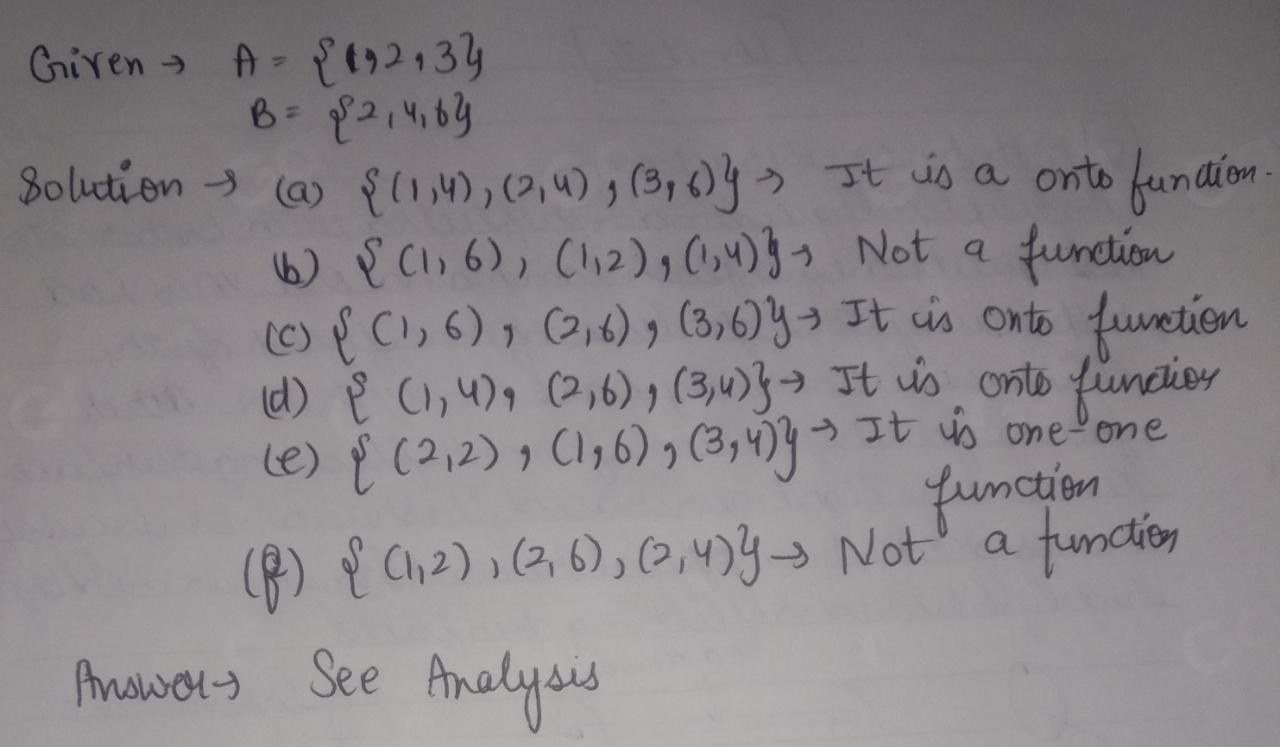 Given → A = {1,2,3}
B = {2,4,6}
Solution → (a) {(1,4), (2,4), (3,6)} → It is a onto function.
(b) {(1,6), (1,2), (1,4)} → Not a function
(c) {(1,6), (2,6), (3,6)} → It is onto function
(d) {(1,4), (2,6), (3,4)} → It is onto function
(e) {(2,2), (1,6), (3,4)} → It is one-one
function
(f) {(1,2), (2,6), (2,4)} → Not a function
Answer → See Analysis